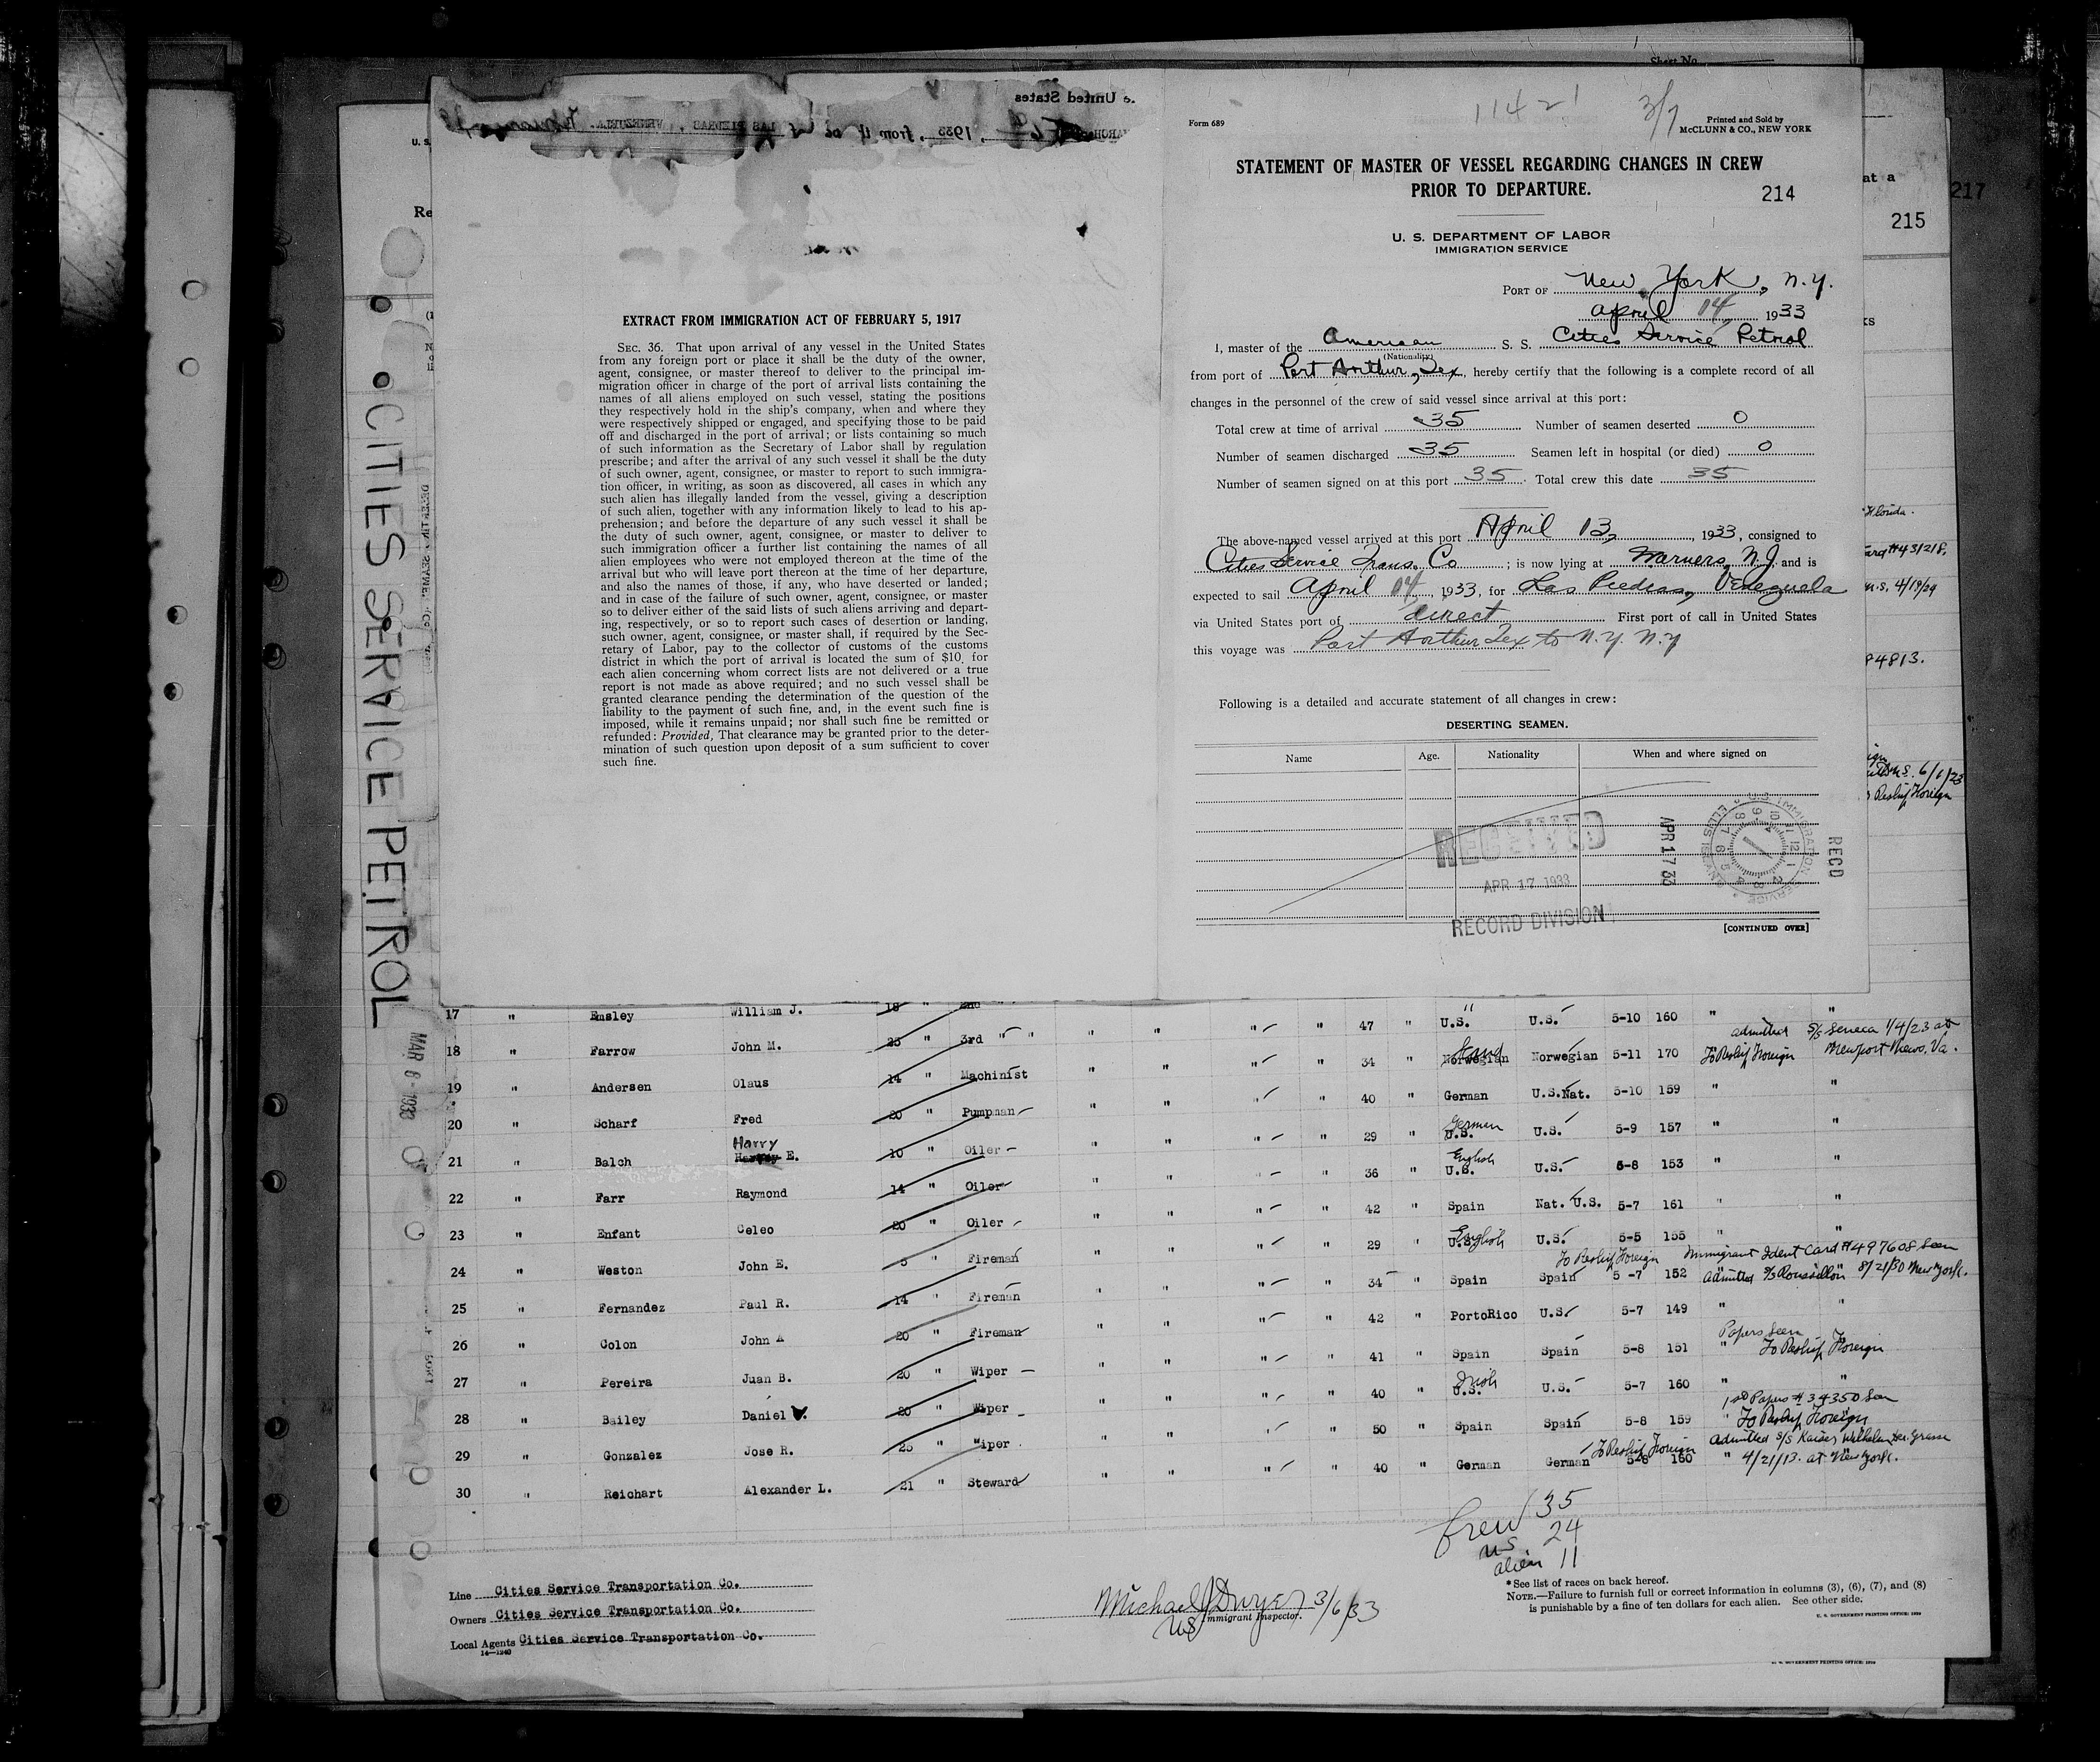 Sheet No.
Form 689
11421
3/7
Printed and Sold by
McCLUNN & CO., NEW YORK
STATEMENT OF MASTER OF VESSEL REGARDING CHANGES IN CREW
PRIOR TO DEPARTURE.
214
215
217
at a
U. S. DEPARTMENT OF LABOR
IMMIGRATION SERVICE
PORT OF New York, N.Y.
April 14, 1933
I, master of the American S. S. Cities Service Petrol
(Nationality)
from port of Port Arthur, Tex, hereby certify that the following is a complete record of all
changes in the personnel of the crew of said vessel since arrival at this port:
Total crew at time of arrival 35 Number of seamen deserted 0
Number of seamen discharged 35 Seamen left in hospital (or died) 0
Number of seamen signed on at this port 35 Total crew this date 35
The above-named vessel arrived at this port April 13, 1933, consigned to
Cities Service Trans. Co ; is now lying at Warners, N.J. and is
expected to sail April 14, 1933, for Las Piedras, Venezuela
via United States port of direct First port of call in United States
this voyage was Port Arthur Tex to N.Y. N.Y
Following is a detailed and accurate statement of all changes in crew:
DESERTING SEAMEN.
Name Age. Nationality When and where signed on
RECEIVED
APR 17 1933
RECORD DIVISION
APR 17 33
RECD
[CONTINUED OVER]
e United States
, 1933, from
LAS PIEDRAS, VENEZUELA.
EXTRACT FROM IMMIGRATION ACT OF FEBRUARY 5, 1917
SEC. 36. That upon arrival of any vessel in the United States
from any foreign port or place it shall be the duty of the owner,
agent, consignee, or master thereof to deliver to the principal im-
migration officer in charge of the port of arrival lists containing the
names of all aliens employed on such vessel, stating the positions
they respectively hold in the ship's company, when and where they
were respectively shipped or engaged, and specifying those to be paid
off and discharged in the port of arrival; or lists containing so much
of such information as the Secretary of Labor shall by regulation
prescribe; and after the arrival of any such vessel it shall be the duty
of such owner, agent, consignee, or master to report to such immigra-
tion officer, in writing, as soon as discovered, all cases in which any
such alien has illegally landed from the vessel, giving a description
of such alien, together with any information likely to lead to his ap-
prehension; and before the departure of any such vessel it shall be
the duty of such owner, agent, consignee, or master to deliver to
such immigration officer a further list containing the names of all
alien employees who were not employed thereon at the time of the
arrival but who will leave port thereon at the time of her departure,
and also the names of those, if any, who have deserted or landed;
and in case of the failure of such owner, agent, consignee, or master
so to deliver either of the said lists of such aliens arriving and depart-
ing, respectively, or so to report such cases of desertion or landing,
such owner, agent, consignee, or master shall, if required by the Sec-
retary of Labor, pay to the collector of customs of the customs
district in which the port of arrival is located the sum of $10 for
each alien concerning whom correct lists are not delivered or a true
report is not made as above required; and no such vessel shall be
granted clearance pending the determination of the question of the
liability to the payment of such fine, and, in the event such fine is
imposed, while it remains unpaid; nor shall such fine be remitted or
refunded: Provided, That clearance may be granted prior to the deter-
mination of such question upon deposit of a sum sufficient to cover
such fine.
CITIES SERVICE PETROL
MAR 6 - 1933
Florida.
Card #43/218.
4/19/29
P4813.
6/1/23
Reship Foreign
17 " Emsley William J. 18 " 2nd " U.S. U.S. 5-10 160 " "
18 " Farrow John M. 25 " 3rd " " " " " " 47 " U.S. U.S. 5-10 160 " "
19 " Andersen Olaus 14 " Machinist " " " " 34 " Norwegian Norwegian 5-11 170 To Reship Foreign admitted S/S Seneca 1/4/23 at Newport News, Va.
20 " Scharf Fred 20 " Pumpman " " " " 40 " German U.S.Nat. 5-10 159 " "
21 " Balch Harry E. 10 " Oiler " " " " 29 " German U.S. U.S. 5-9 157 " "
22 " Farr Raymond 14 " Oiler " " " " 36 " English U.S. U.S. 5-8 153 " "
23 " Enfant Celeo 20 " Oiler " " " " 42 " Spain Nat. U.S. 5-7 161 " "
24 " Weston John E. 5 " Fireman " " " " 29 " English U.S. U.S. 5-5 155 " "
25 " Fernandez Paul R. 14 " Fireman " " " " 34 " Spain Spain 5-7 152 To Reship Foreign Immigrant Ident Card #497608 Seen Admitted S/S Roussillon 8/21/30 New York.
26 " Colon John A 20 " Fireman " " " " 42 " PortoRico U.S. 5-7 149 " "
27 " Pereira Juan B. 20 " Wiper " " " " 41 " Spain Spain 5-8 151 " Papers Seen To Reship Foreign
28 " Bailey Daniel V. 20 " Wiper " " " " 40 " Irish U.S. U.S. 5-7 160 " "
29 " Gonzalez Jose R. 25 " Wiper " " " " 50 " Spain Spain 5-8 159 " 1st Papers #34350 Seen To Reship Foreign
30 " Reichart Alexander L. 21 " Steward " " " " 40 " German German 5-8 160 To Reship Foreign Admitted S/S Kaiser Wilhelm Der Grosse " 4/21/13. at New York.
Crew 35
US 24
alien 11
Line Cities Service Transportation Co.
Owners Cities Service Transportation Co.
Local Agents Cities Service Transportation Co.
14—1240
Michael J Dwyer 3/6/33
US Immigrant Inspector.
* See list of races on back hereof.
NOTE.—Failure to furnish full or correct information in columns (3), (6), (7), and (8)
is punishable by a fine of ten dollars for each alien. See other side.
U. S. GOVERNMENT PRINTING OFFICE: 1930